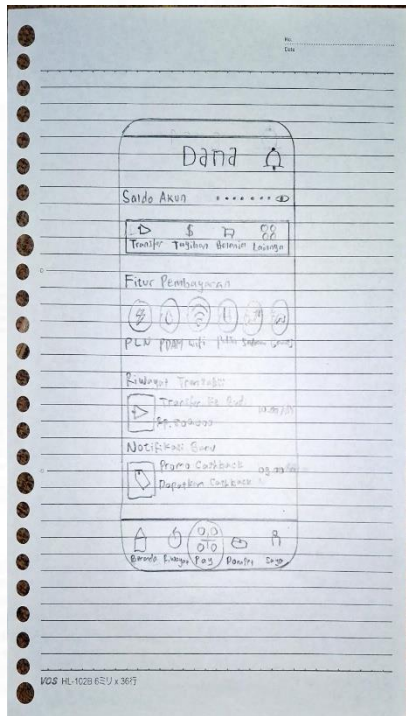 No.
Date
Dana
Saldo Akun
Transfer Tagihan Belanja Lainnya
Fitur Pembayaran
PLN PDAM Wifi
Riwayat Transaksi
Transfer ke Budi
Rp.200000
Notifikasi Baru
Promo Cashback
Dapatkan Cashback
Beranda Riwayat Pay Dompet Saya
VOS HL-102B 6ミリ x 36行